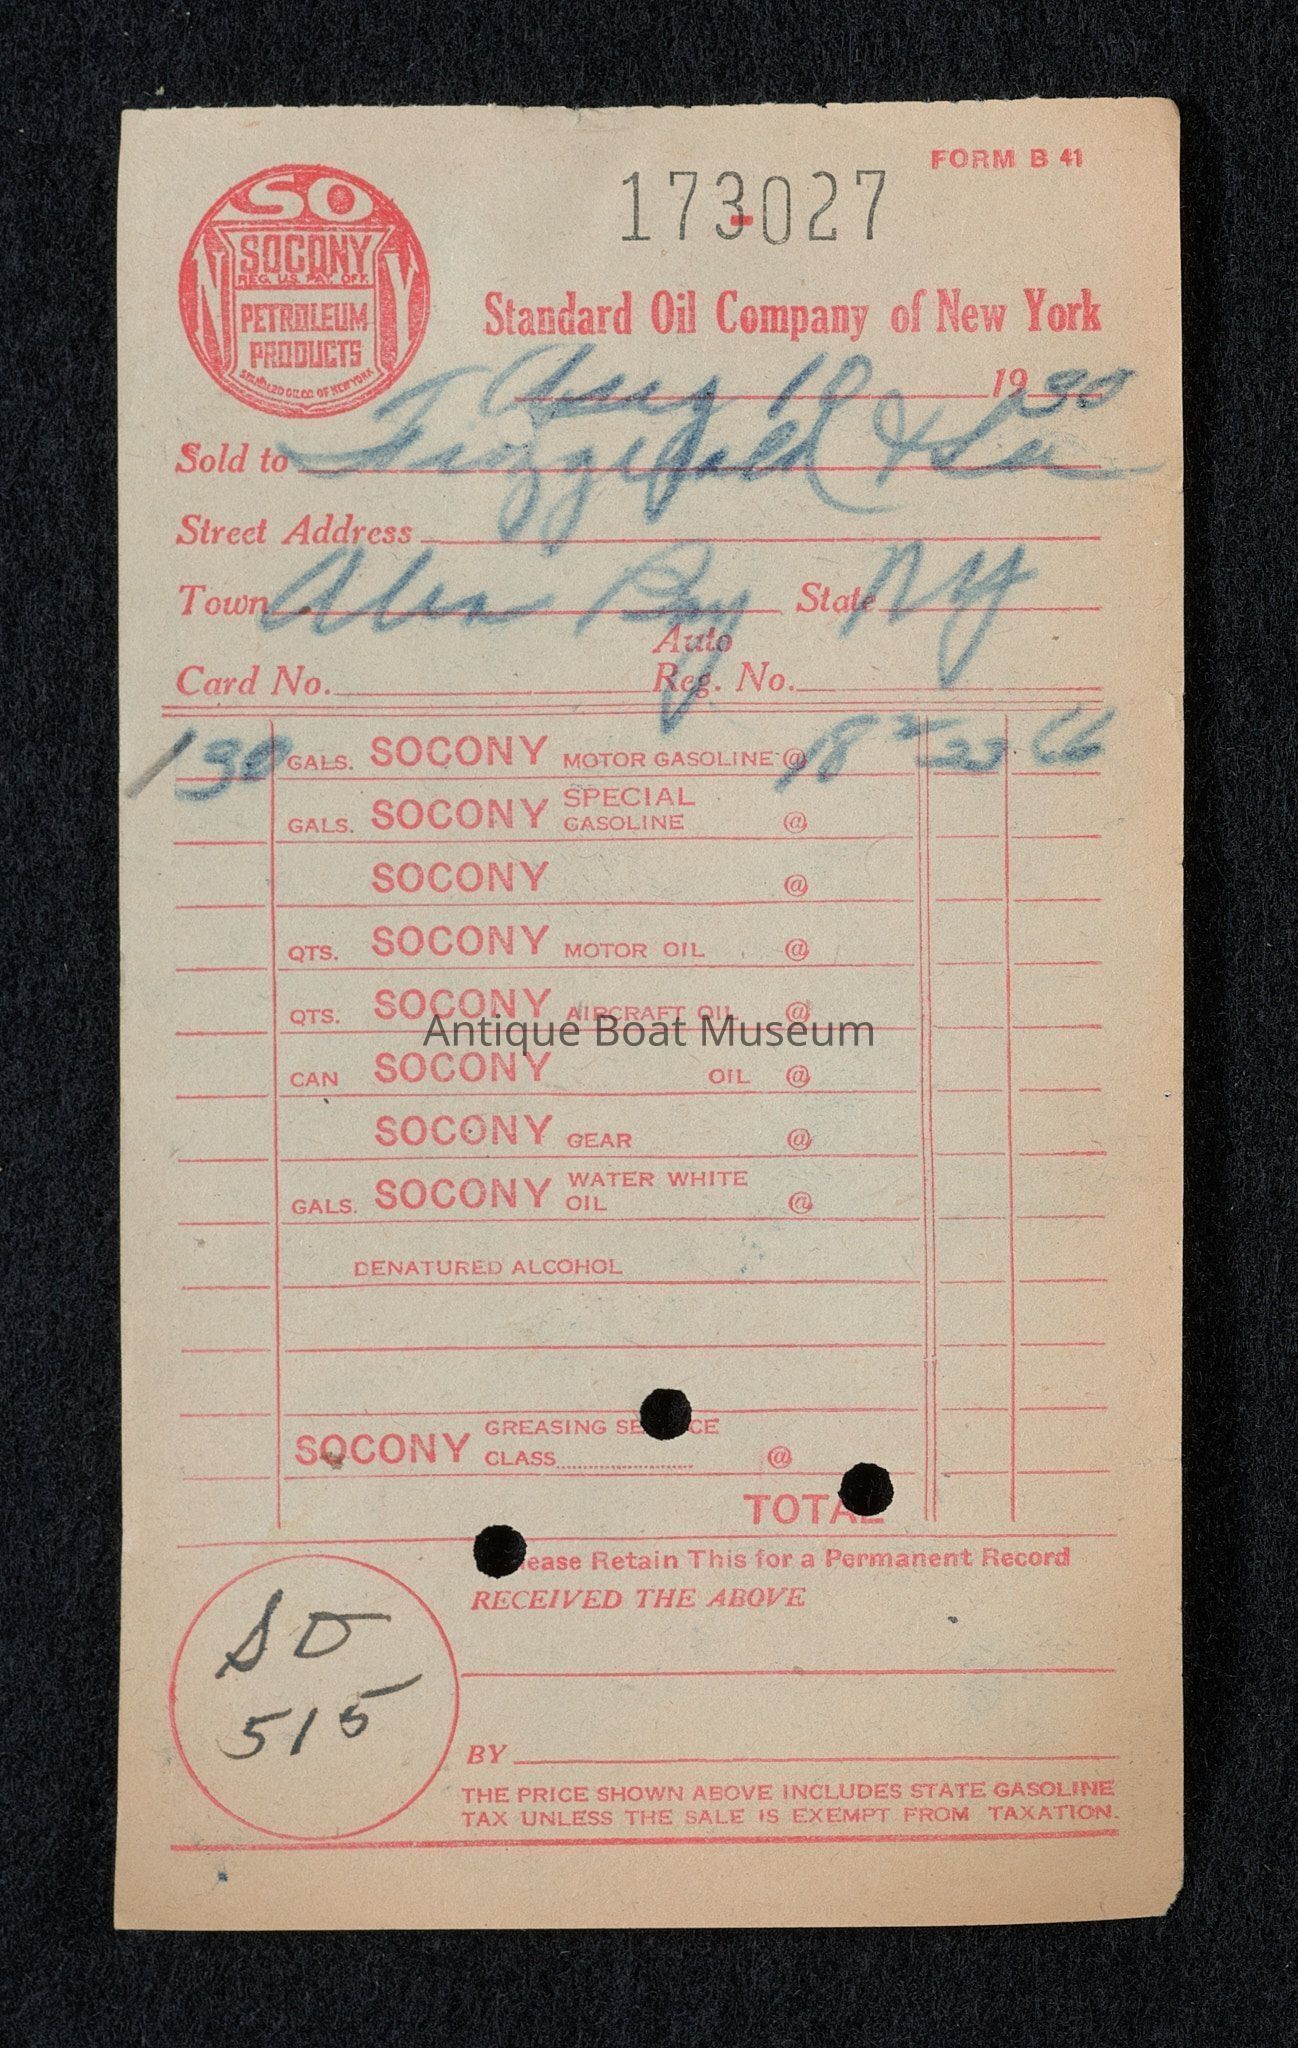 FORM B 41
173-027
SO
NY
SOCONY
REG. U.S. PAT. OFF.
PETROLEUM
PRODUCTS
STANDARD OIL CO. OF NEW YORK
Standard Oil Company of New York
Aug 18 1930
Sold to
Street Address
Town Alex Bay State NY
Auto
Card No. Reg. No.
130 GALS. SOCONY MOTOR GASOLINE @ 18 2 23 66
SPECIAL
GALS. SOCONY GASOLINE @
SOCONY @
QTS. SOCONY MOTOR OIL @
QTS. SOCONY AIRCRAFT OIL @
Antique Boat Museum
CAN SOCONY OIL @
SOCONY GEAR @
WATER WHITE
GALS. SOCONY OIL @
DENATURED ALCOHOL
GREASING SE CE
SOCONY CLASS @
TOTAL
ease Retain This for a Permanent Record
RECEIVED THE ABOVE
SD
515
BY
THE PRICE SHOWN ABOVE INCLUDES STATE GASOLINE
TAX UNLESS THE SALE IS EXEMPT FROM TAXATION.